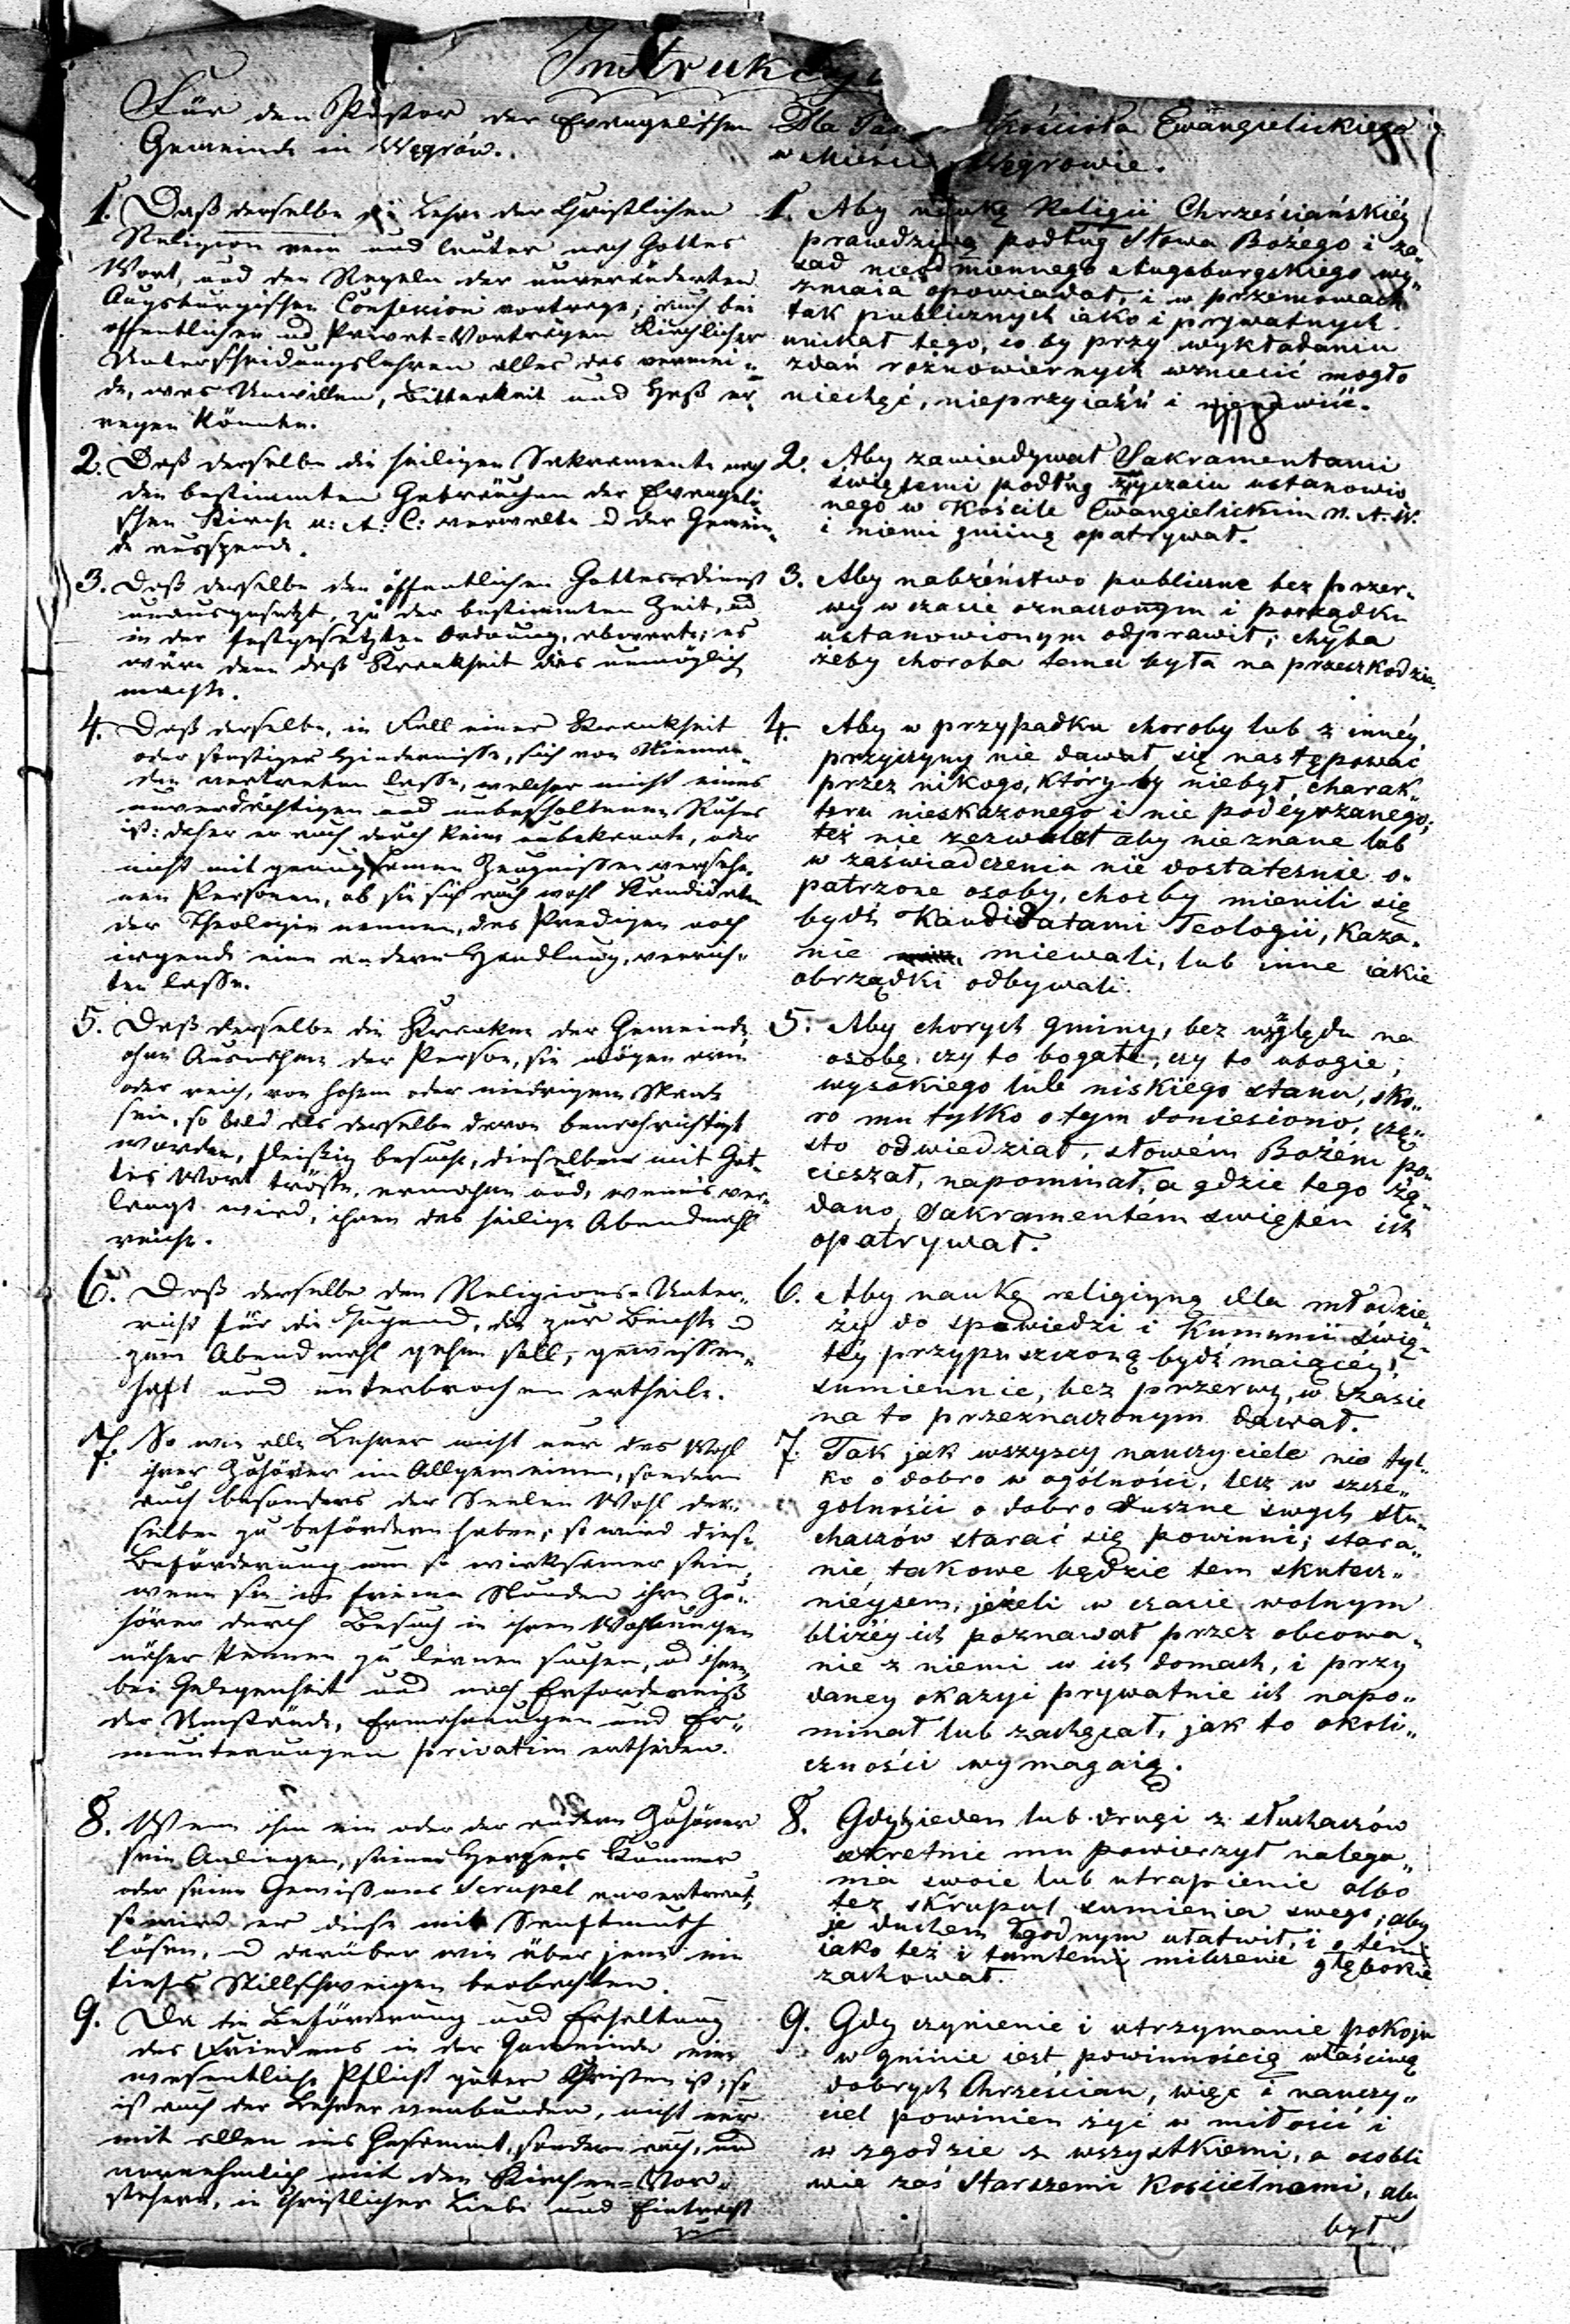 Instrukcyi
Für den Pastor der Evangelischen
Gemeinde in Węgrów.
1. Daß derselbe die Lehre der Christlichen
Religion rein und lauter nach Gottes
Wort, und den Regeln der unveränderten
Augsburgischen Confession vortrage; auch bei
öffentlichen und Privat=Vorträgen kirchlicher
Unterscheidungslehren alles das vermei=
de, was Unwillen, Bitterkeit und Haß er=
regen könnte.
2. Daß derselbe die heiligen Sakramente nach
den bestimmten Gebräuchen der Evangeli=
schen Kirche u: A: C: verwalte u der Gemein=
de ausspende.
3. Daß derselbe den öffentlichen Gottesdienst
unausgesetzt, zu der bestimmten Zeit, und
in der festgesetzten Ordnung, abwarte; es
wäre denn daß Krankheit dies unmöglich
machte.
4. Daß derselbe, im Fall einer Krankheit
oder sonstiger Hindernisse, sich von Nieman=
den vertreten lasse, welcher nicht eines
unverdächtigen und unbescholtenen Rufes
ist: daher er auch durch keine unbekannte, oder
nicht mit genugsamen Zeugnissen versehe=
nen Personen, ob sie sich auch wohl Kandidaten
der Theologie nennen, das Predigen noch
irgend eine andere Handlung, verrich=
ten lasse.
5. Daß derselbe die Kranken der Gemeinde,
ohne Ausnahme der Person, sie mögen arm
oder reich, von hohem oder niedrigem Stande
sein, so bald als derselbe davon benachrichtigt
worden, fleißig besuche, dieselben mit Got=
tes Wort tröste, ermahne und, wenn's ver=
langt wird, ihnen das heilige Abendmahl
reiche.
6. Daß derselbe den Religions=Unter=
richt für die Jugend, die zur Beichte u
zum Abendmahl gehen soll, gewissen=
haft und unterbrochen ertheile.
7. So wie alle Lehrer nicht nur das Wohl
ihrer Zuhörer im Allgemeinen, sondern
auch besonders der Seelen Wohl der=
selben zu befördern haben; so wird diese
Beförderung um so wirksamer sein,
wenn sie in freien Stunden ihre Zu=
hörer durch Besuch in ihren Wohnungen
näher kennen zu lernen suchen, und ihnen
bei Gelegenheit und nach Erforderniß
der Umstände, Ermahnungen und Er=
munterungen privatim ertheilen.
8. Wenn ihm ein oder der andere Zuhörer
sein Anliegen, seines Herzens Kummer
oder seine Gewissens Scrupel anvertraut,
so wird er diese mit Sanftmuth
lösen, u darüber wie über jene ein
tiefes Stillschweigen beobachten.
9. Da die Beförderung und Erhaltung
des Friedens in der Gemeinde eine
wesentliche Pflicht guter Christen ist; so
ist auch der Lehrer verbunden, nicht nur
mit allen ins Gesammt, sondern auch, und
vornehmlich mit den Kirchen=Vor=
stehern, in Christlicher Liebe und Eintracht
zu
Dla Kościoła Ewangielickiego
w Mieście Węgrowie.
1. Aby naukę Religii Chrześciańskiéy
prawdziwą podług Słowa Bożego i za=
sad nieodmiennego Augsburgskiego wy=
znania opowiadał, i w przemowach
tak publicznych iako i prywatnych
unikał tego, co by przy wykładaniu
zdań różnowiernych wzniecić mogło
niechęć, nieprzyiaźń i nienawiść.
118
2. Aby zawiadywał Sakramentami
świętemi podług zwyczaiu ustanowio
nego w Kościele Ewangielickim N. A. W.
i niemi gminę opatrywał.
3. Aby nabżeństwo publiczne bez przer=
wy w czasie oznaczonym i porządku
ustanowionym odprawił; chyba
żeby choroba temu była na przeszkodzie.
4. Aby w przypadku choroby lub z innéy
przyczyny nie dawał się następować
przez nikogo, który by niebył, charak=
teru nieskażonego i nie podeyrzanego;
też nie zezwalał aby nieznane lub
w zaświadczenia nie dostatecznie o=
patrzone osoby, choćby mienili się
bydź Kandidatami Teologii, Kaza=
nie miewali, lub inne iakie
obrządki odbywali.
5. Aby chorych gminy, bez względu na
osobę, czy to bogate, czy to ubogie,
wysokiego lub niskiego stanu, sko=
ro mu tylko o tym doniesiono, czę=
sto odwiedział, słowém Bożém po=
cieszał, napominał, a gdzie tego żą=
dano, Sakramentém świętém ich
opatrywał.
6. Aby naukę religiyną dla młodzie=
ży do spowiedzi i Kumunii świę=
téy przypuszczoną bydź maiącéy,
sumiennie, bez przerwy, w czasie
na to przeznaczonym dawał.
7. Tak jak wszyscy nauczyciele nie tyl=
ko o dobro w ogólności, lecz w szcze=
gólności o dobro duszne swych słu=
chaczów starać się powinni; stara=
nie takowe będzie tem skutecz=
nieyszem, jeżeli w czasie wolnym
bliżéy ich poznawał przez obcowa=
nie z niemi w ich domach, i przy
daney okazyi prywatnie ich napo=
minał lub zachęcał, jak to okoli=
czności wymagaią.
8. Gdyby ieden lub drugi z słuchaczów
sekretnie mu powierzył nalega=
nia swoie lub utrapienie albo
też skrupuł sumienia swego; aby
je duchem łagodnym ułatwił, i o tém
iako też i tamtemi milczenie głębokie
zachował.
9. Gdy czynienie i utrzymanie pokoju
w gminie iest powinnością właściwą
dobrych Chrześcian, więc i nauczy=
ciel powinien żyć w miłości i
w zgodzie z wszystkiemi, a osobli
wie zaś Starszemi Kościelnemi, aby
był